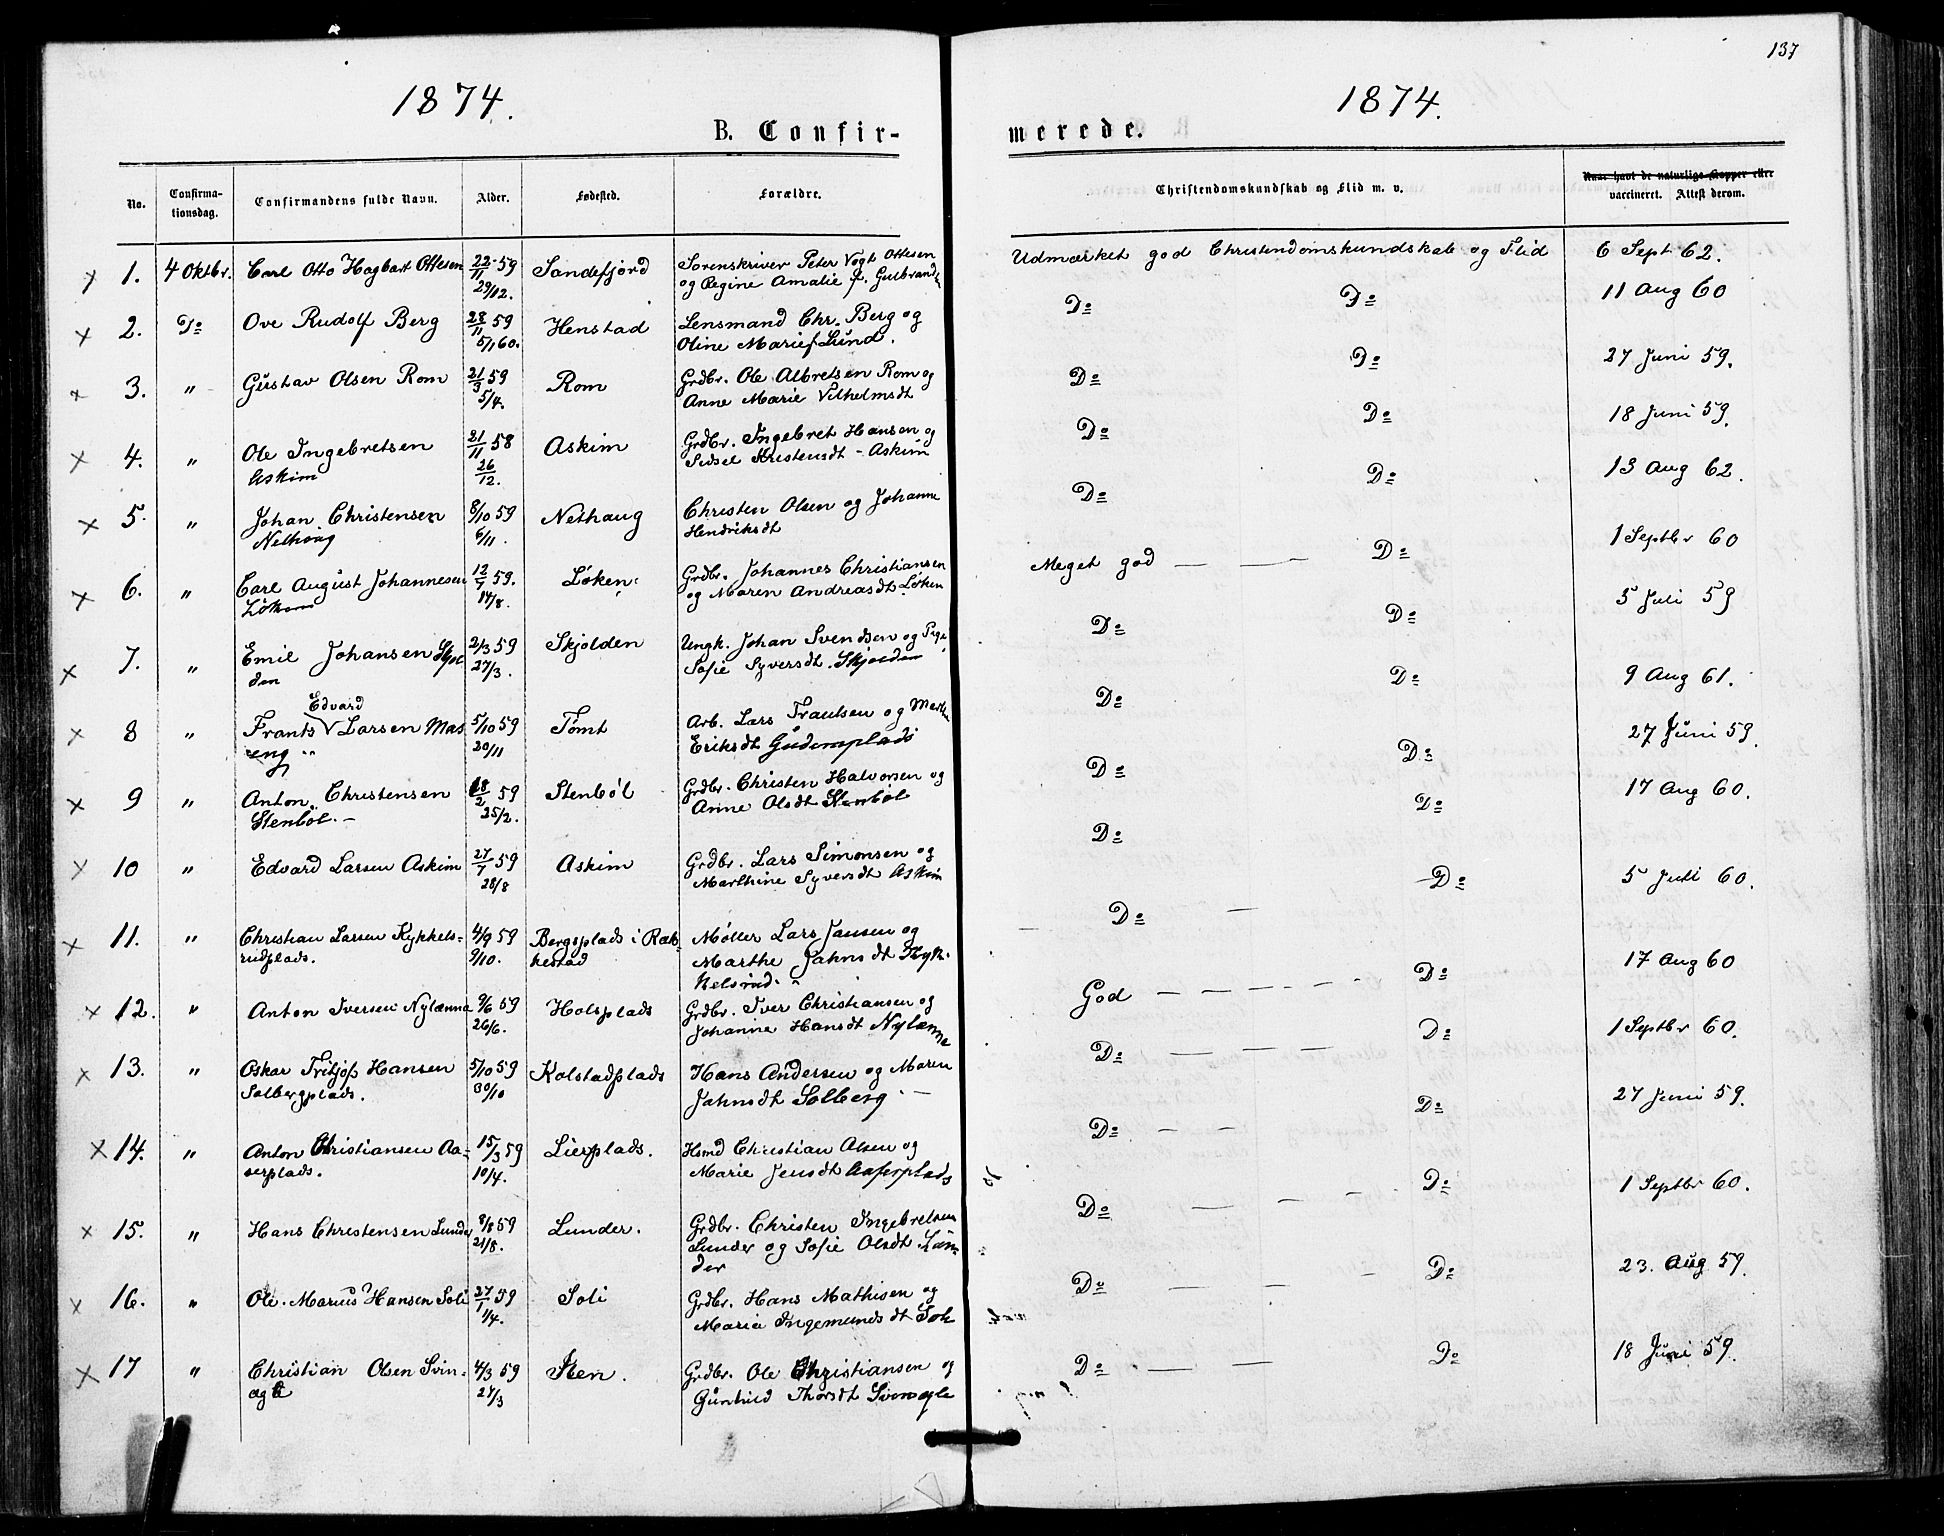 137
1874.
1874.
B. Confir-
merede.
No.
Confirma-
tionsdag.
Confirmandens fulde Navn.
Alder.
Fødested.
Forældre.
Christendomskundskab og Flid m. v.
Naar havt de naturlige Kopper eller
vaccineret. Attest derom.
1. 4 Oktbr. Carl Otto Hagbart Ottesen 22/11 59 Sandefjord Sorenskriver Peter Vogt Ottesen
29/12. og Regine Amalie f. Gulbrands
Udmærket god Christendomskundskab og Flid 6 Sept 62.
2. Do Ove Rudolf Berg 28/11 59 Henstad Lensmand Chr. Berg og
5/1 60. Oline Marie f Lund.
Do Do 11 Aug 60
3. " Gustav Olsen Rom 21/3 59 Rom Grdbr. Ole Albretsen Rom og
5/4. Anne Marie Vilhelmsdt
Do Do 27 Juni 59.
4. " Ole Ingebretsen 21/11 58 Askim Grdbr. Ingebret Hansen og
Askim 26/12. Sidsel Kristensdt - Askim
Do Do 18 Juni 59.
5. " Johan Christensen 8/10 59 Nethaug Christen Olsen og Johanne
Nethoug 6/11. Hendriksdt
Do Do 13 Aug 62.
6. " Carl August Johannesen 12/7 59. Løken Grdbr. Johannes Christiansen
Løken 14/8. og Maren Andreasdt Løken
Meget god — — Do 1 Septbr 60
7. " Emil Johansen Skjol 2/3 59 Skjolden Ungk. Johan Svendsen og Pige
den 27/3. Sofie Syversdt. Skjolden
Do Do 5 Juli 59
Edvard
8 " Frants V Larsen Mas 5/10 59 Tomt Arb. Lars Frantsen og Marthe
eng " 20/11 Eriksdt Gudemplads
Do Do 9 Aug 61.
9 " Anton Christensen 18/2 59 Stenbøl Grdbr. Christen Halvorsen og
Stenbøl. - 25/2. Anne Olsdt Stenbøl
Do Do 27 Juni 59.
10 " Edvard Larsen Askim 27/7 59 Askim Grdbr. Lars Simonsen og
28/8 Marthine Syversdt Askim
Do Do 17 Aug 60.
11. " Christian Larsen Kykkels- 4/9 59 Bergsplads i Rak- Møller Lars Jansen og
rudplads. 9/10. kestad Marthe Jahnsdt Kyk-
kelsrud. "
— Do — Do 5 Juli 60.
12. " Anton Iversen Nylænna 9/6 59 Holsplads Grdbr. Iver Christiansen og
26/6. Johanne Hansdt Nylænne
God — — — — Do 17 Aug 60
13. " Oskar Fritjof Hansen 5/10 59 Kolstadplads Hans Andersen og Maren
Solbergplads. 30/10 Jahnsdt Solberg. —
Do — — — Do 1 Septbr 60.
14. " Anton Christiansen Aa- 15/3 59 Lierplads. Hsmd Christian Olsen og
serplads. 10/4. Marie Jensdt Aaserplads
Do — — Do 27 Juni 59.
15. " Hans Christensen Lunder 8/8 59 Lunder. Grdbr. Christen Ingebretsen
21/8. Lunder og Sofie Olsdt Lun-
der
Do — — — Do 1 Septbr 60.
16. " Ole Marius Hansen Soli 27/1 59 Soli Grdbr. Hans Mathisen og
1/4. Maria Ingemundsdt Soli
Do — — — Do 23. Aug 59.
17 " Christian Olsen Svin- 4/3 59 Sten. Grdbr. Ole Christiansen og
agle 27/3 Gunhild Thorsdt Svinagle
Do — — Do 18 Juni 59.